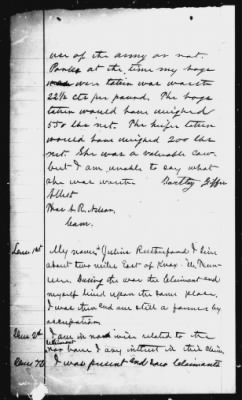 use of the army or not.
Pork at the time my hogs
were taken was worth
22½ cts per pound. The hogs
taken would have weighed
550 lbs net. The heifer taken
would have weighed 200 lbs
net. She was a valuable cow
but I am unable to say what
she was worth
Attest
Com.
My name Julius Rutherford I live
about two miles East of
During the war the Claimant and
myself lived upon the same place,
I was then and am still a farmer by
occupation
I am in no wise related to the
claimant nor have I any interest in this claim
I was present and saw Claimants